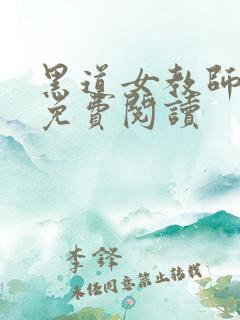 黑道女教師
免費閱讀
李鐸
未经同意禁止转载